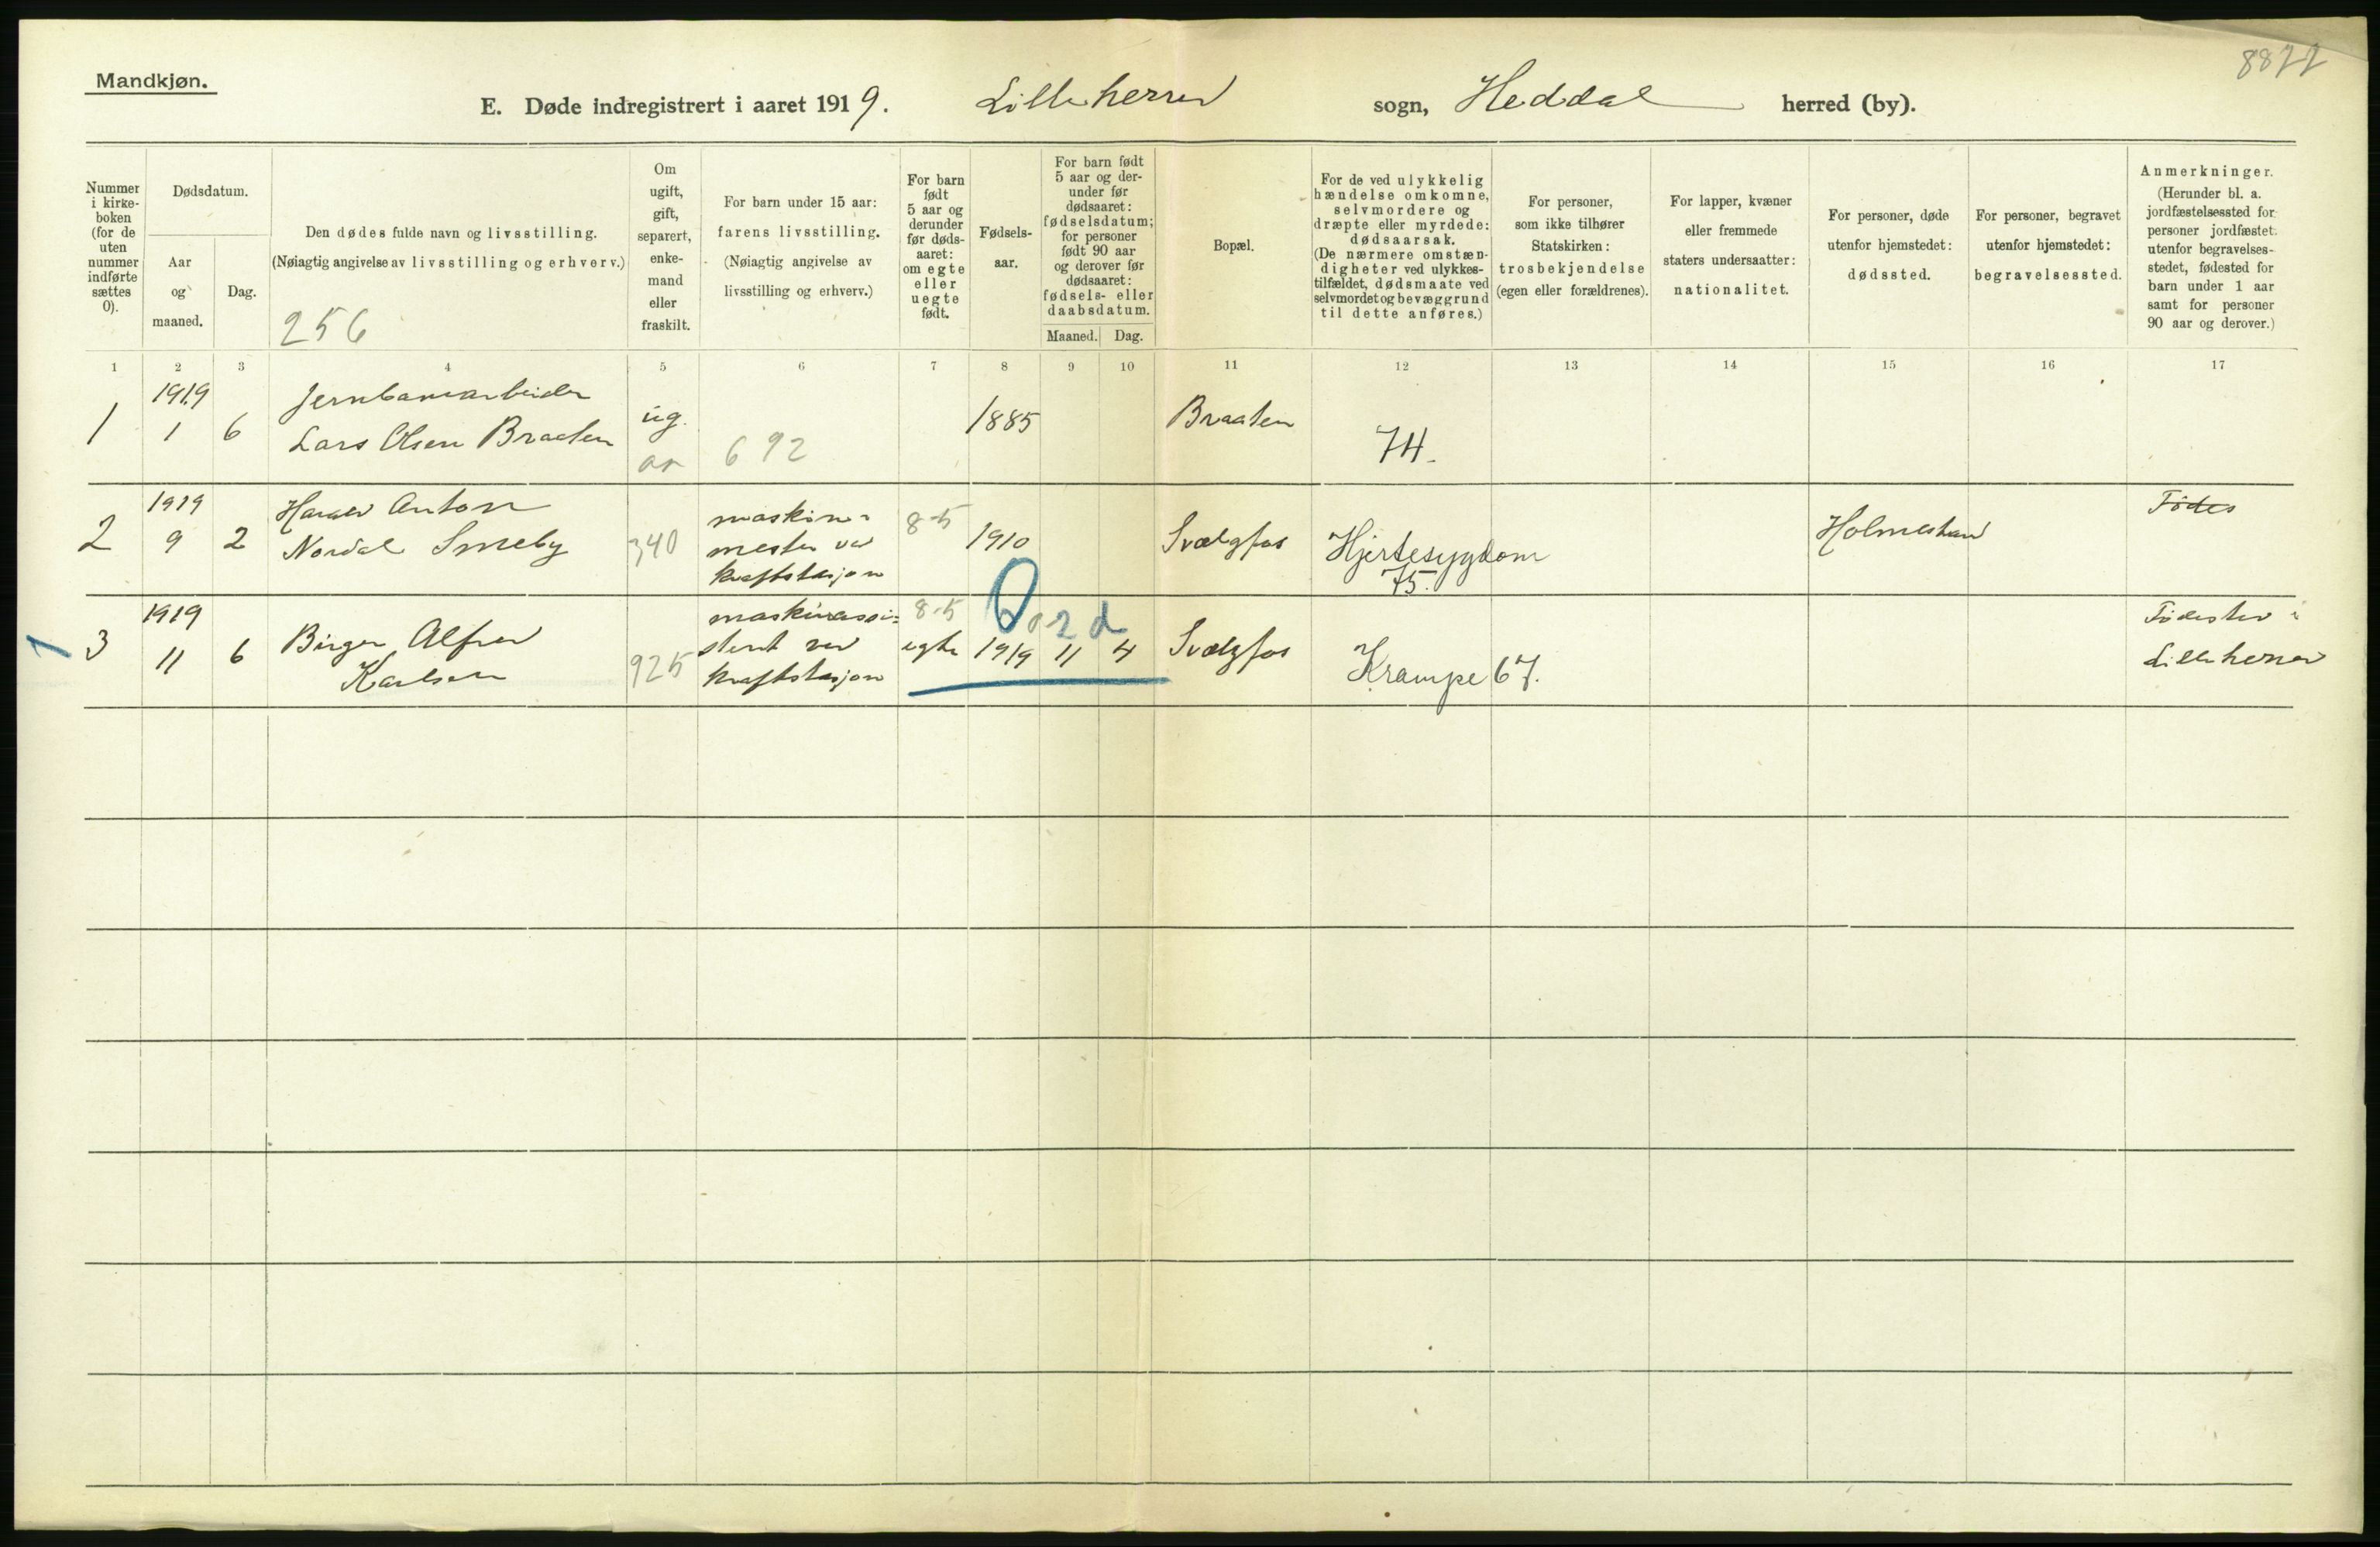 8877
Mandkjøn.
E. Døde indregistrert i aaret 1919. Lilleherred sogn, Heddal herred (by).
Nummer i kirke- boken (for de uten nummer indførte sættes 0).
Dødsdatum.
Aar og maaned.
Dag.
Den dødes fulde navn og livsstilling.
(Nøiagtig angivelse av livsstilling og erhverv.)
256
Om ugift, gift, separert, enke- mand eller fraskilt.
For barn under 15 aar: farens livsstilling.
(Nøiagtig angivelse av livsstilling og erhverv.)
For barn født 5 aar og derunder før døds- aaret: om egte eller uegte født.
Fødsels- aar.
For barn født 5 aar og der- under før dødsaaret: fødselsdatum; for personer født 90 aar og derover før dødsaaret: fødsels- eller daabsdatum.
Maaned. Dag.
Bopæl.
For de ved ulykkelig hændelse omkomne, selvmordere og dræpte eller myrdede: dødsaarsak.
(De nærmere omstæn- digheter ved ulykkes- tilfældet, dødsmaate ved selvmordet og bevæggrund til dette anføres.)
For personer, som ikke tilhører Statskirken: trosbekjendelse (egen eller forældrenes).
For lapper, kvæner eller fremmede staters undersaatter: nationalitet.
For personer, døde utenfor hjemstedet: dødssted.
For personer, begravet utenfor hjemstedet: begravelsessted.
Anmerkninger.
(Herunder bl. a. jordfæstelsessted for personer jordfæstet utenfor begravelses- stedet, fødested for barn under 1 aar samt for personer 90 aar og derover.)
1 2 3 4 5 6 7 8 9 10 11 12 13 14 15 16 17
1 1919 1 6 Jernbanearbeider
Lars Olsen Braaten ug. 692 1885 Braaten 74.
2 1919 9 2 Harald Anton
Nordal Smeby 340 maskin-
mester ved
kraftstasjon 8-5 1910 Svælgfos Hjertesygdom
75. Holmestrand Födes
1 3 1919 11 6 Birger Alfred
Karlsen 925 maskinassi-
stent ved
kraftstasjon 8-5
egte 1919 11 4 2 d Svælgfos Krampe 67. Födested i
Lilleherred